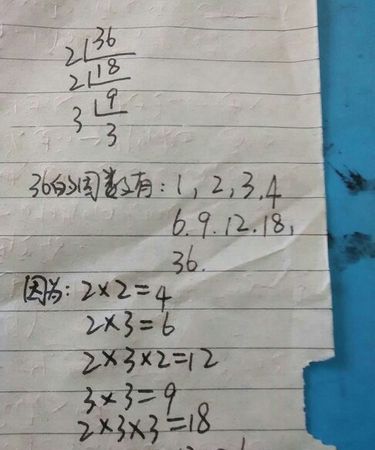 2 36
2 18
3 9
3
36的因数有：1，2，3，4
6.9.12.18，
36.
因为：2×2=4
2×3=6
2×3×2=12
3×3=9
2×3×3=18